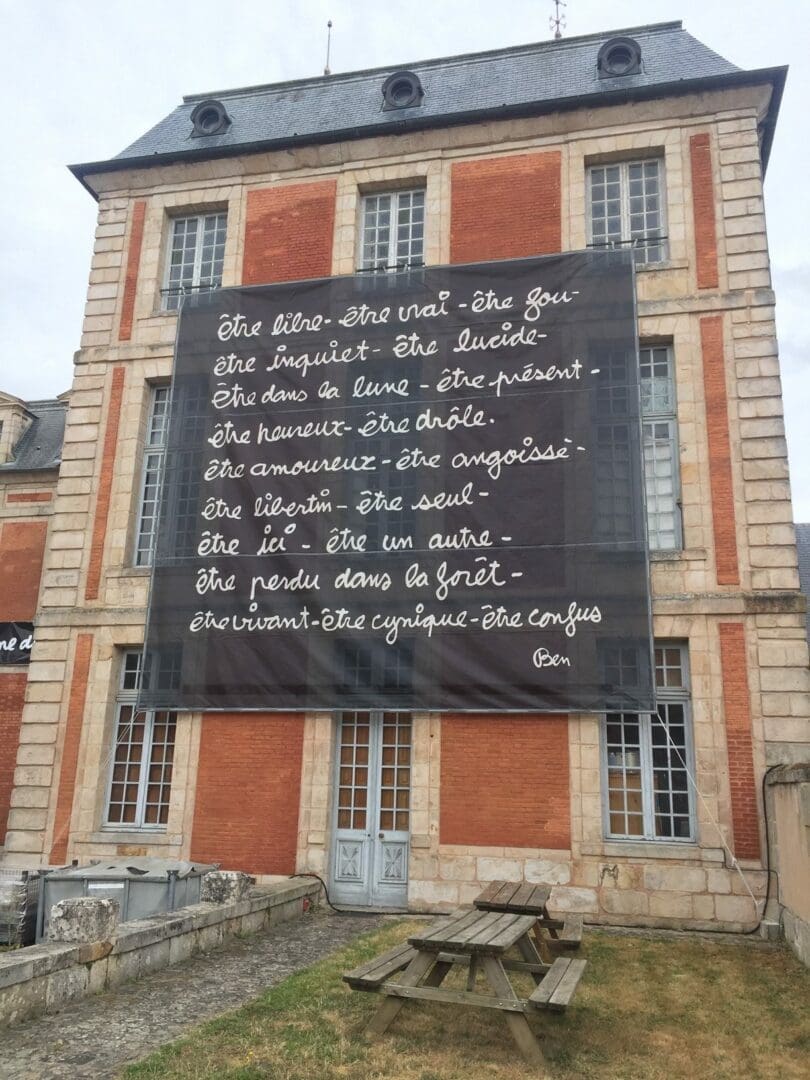 être libre - être vrai - être fou -
être inquiet - être lucide -
être dans la lune - être présent -
être heureux - être drôle.
être amoureux - être angoissè -
être libertin - être seul -
être ici - être un autre -
être perdu dans la forêt -
être vivant - être cynique - être confus
Ben